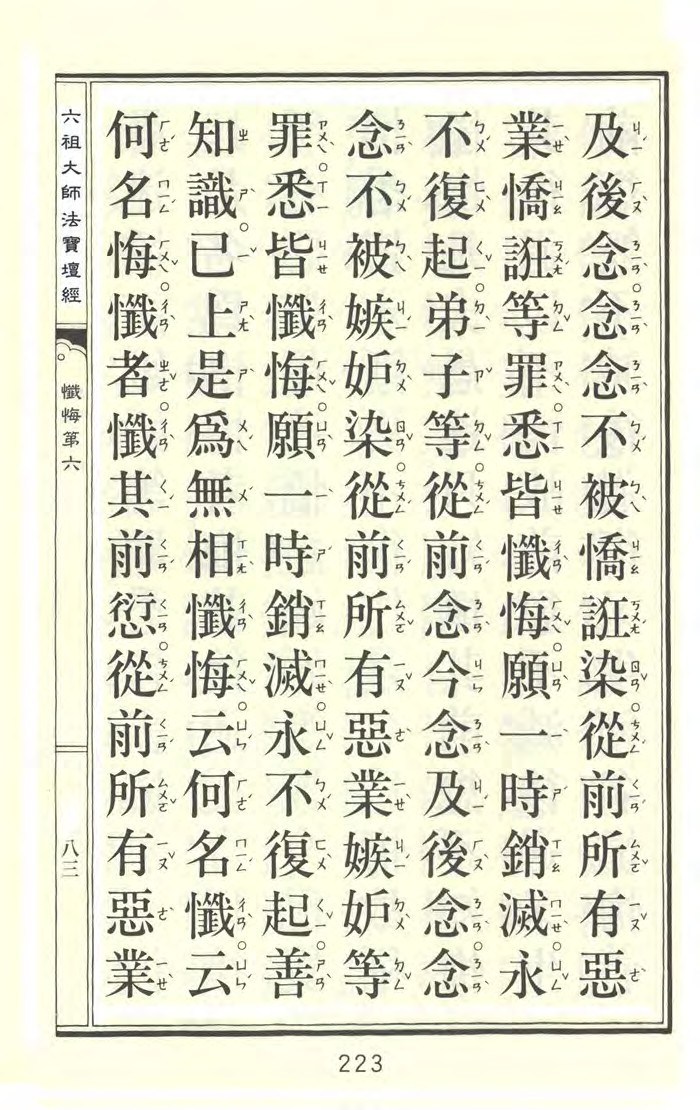 及後念念念不被憍誑染從前所有惡
業憍誑等罪悉皆懺悔願一時銷滅永
不復起弟子等從前念今念及後念念
念不被嫉妒染從前所有惡業嫉妒等
罪悉皆懺悔願一時銷滅永不復起善
知識已上是為無相懺悔云何名懺云
何名悔懺者懺其前愆從前所有惡業
六祖大師法寶壇經
懺悔第六
八三
223